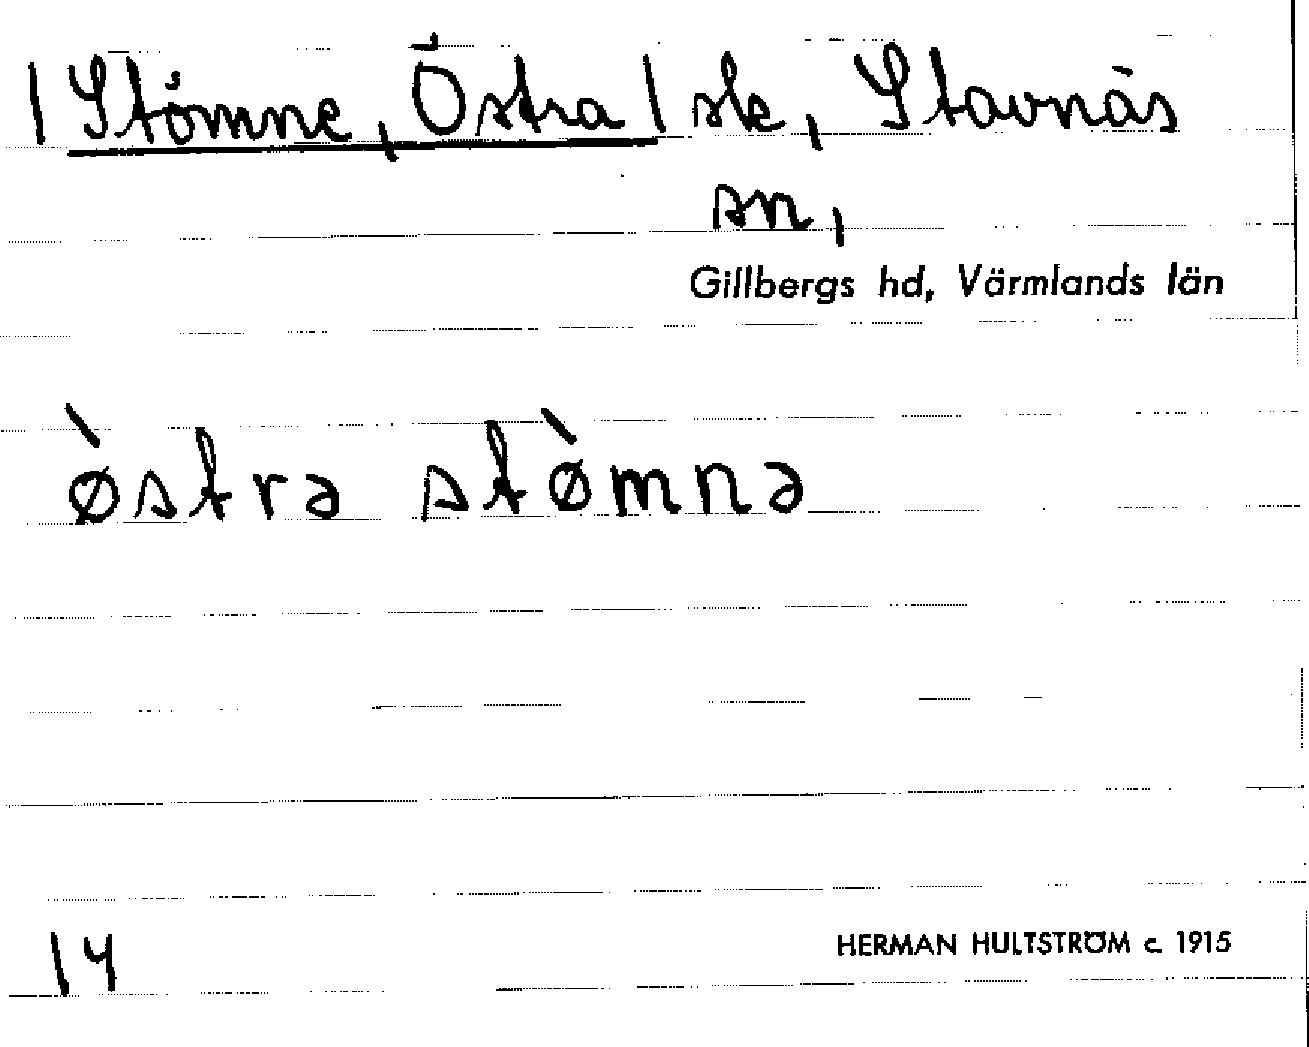 | Stömne, Östra | sk, Stavnäs
sn,
Gillbergs hd, Värmlands län
ø̀stra stø̀mnə
14
HERMAN HULTSTRÖM c. 1915